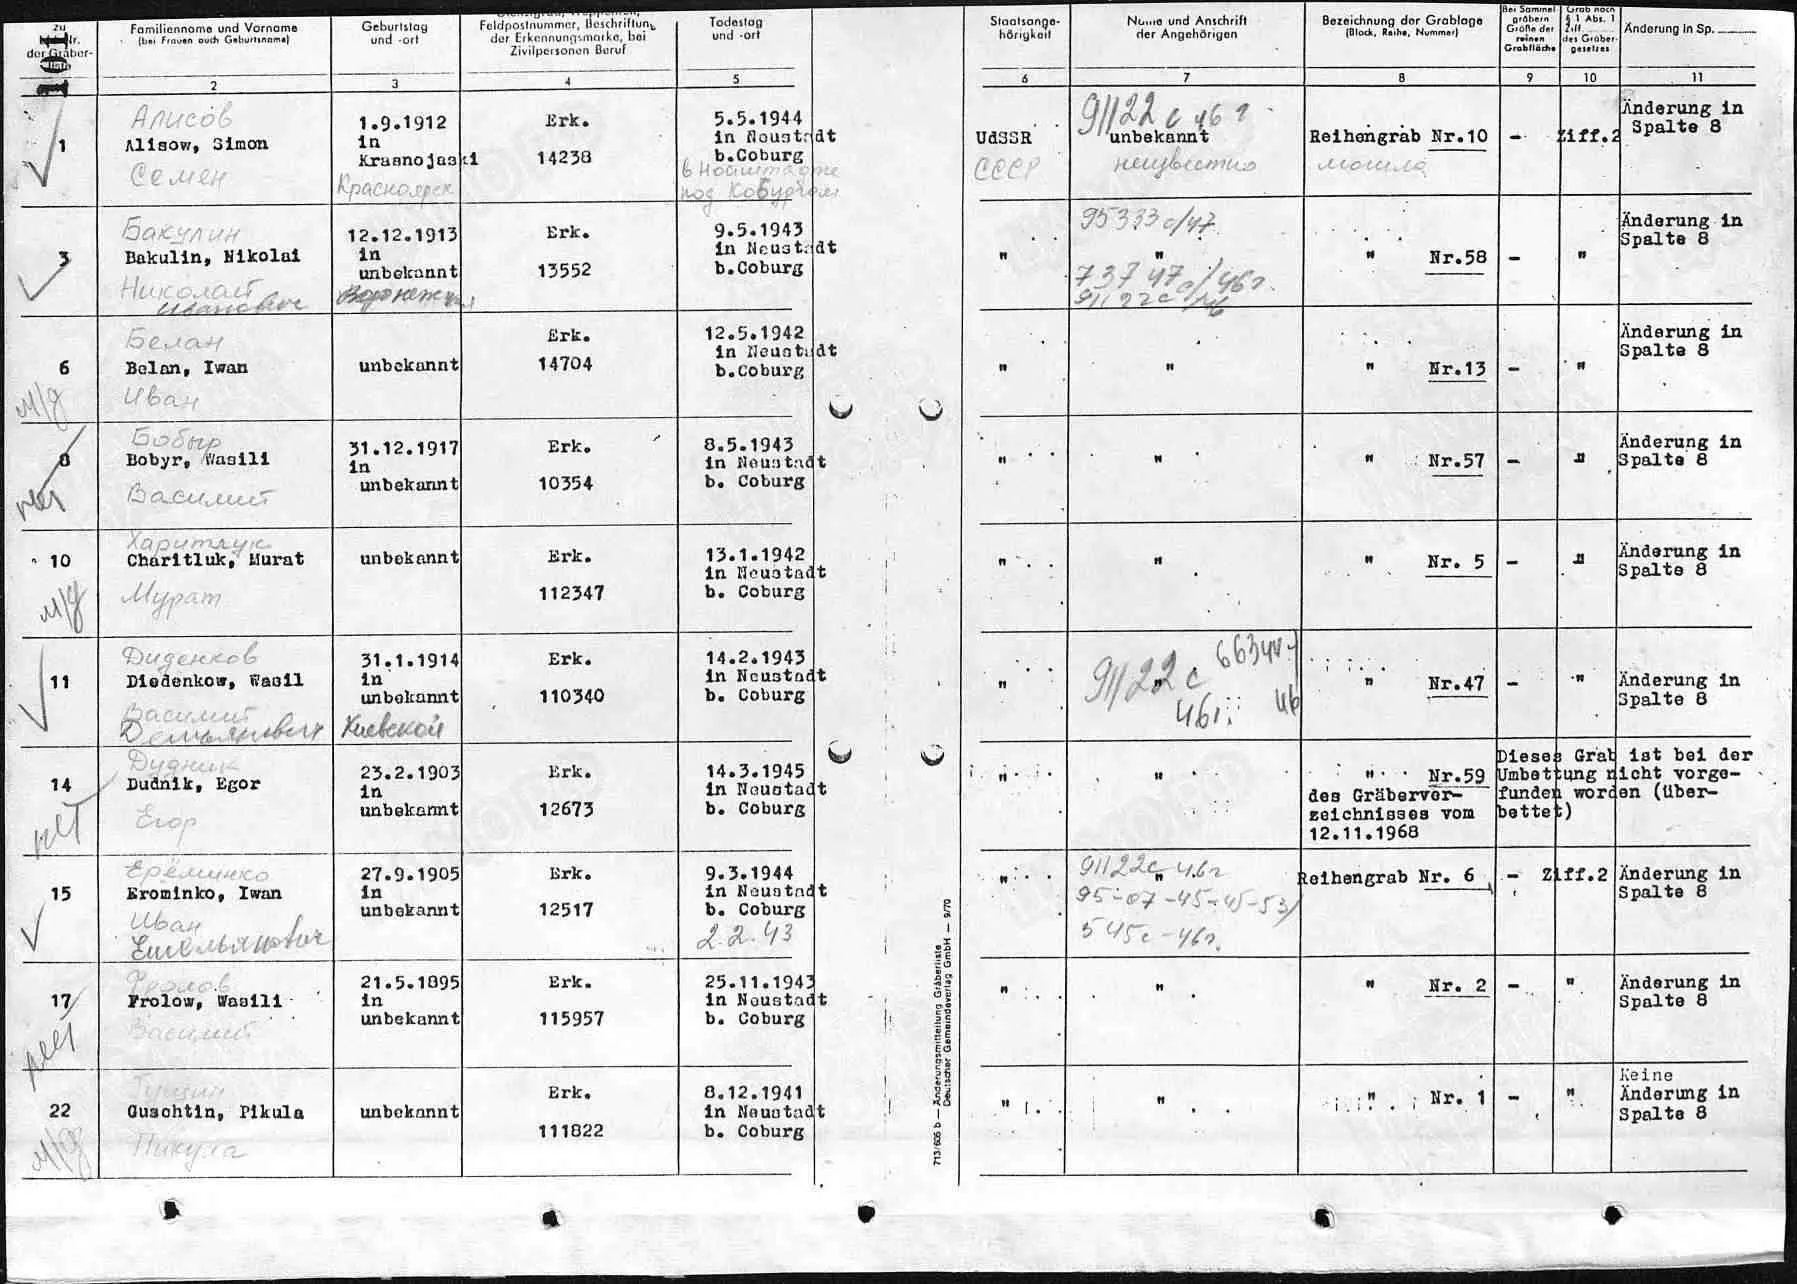 101
Familienname und Vorname
(bei Frauen auch Geburtsname)
Geburtstag
und -ort
Feldpostnummer, Beschriftung
der Erkennungsmarke, bei
Zivilpersonen Beruf
Todestag
und -ort
Staatsange-
hörigkeit
Name und Anschrift
der Angehörigen
Bezeichnung der Grablage
(Block, Reihe, Nummer)
Bei Sammel-
gräbern
Größe der
reinen
Grabfläche
Grab nach
§ 1 Abs. 1
Ziff.
des Gräber-
gesetzes
Änderung in Sp.
2 3 4 5 6 7 8 9 10 11
Алисов
1
Alisow, Simon
Семен
1.9.1912
in
Krasnojaski
Красноярск
Erk.
14238
5.5.1944
in Neustadt
b.Coburg
в Нойштадте
под Кобургом
UdSSR
СССР
91122 с 46 г
unbekannt
неизвестно
Reihengrab Nr.10
могила
-
Ziff.2
Änderung in
Spalte 8
Бакулин
3
Bakulin, Nikolai
Николай
Иванович
12.12.1913
in
unbekannt
Erk.
13552
9.5.1943
in Neustadt
b.Coburg
"
95333 с/47
"
73747 с/46г.
91122 с/46
" Nr.58
-
"
Änderung in
Spalte 8
Белан
6
Belan, Iwan
Иван
м/д
unbekannt
Erk.
14704
12.5.1942
in Neustadt
b.Coburg
"
"
" Nr.13
-
"
Änderung in
Spalte 8
Бобыр
8
Bobyr, Wasili
Василий
нет
31.12.1917
in
unbekannt
Erk.
10354
8.5.1943
in Neustadt
b. Coburg
"
"
" Nr.57
-
"
Änderung in
Spalte 8
Харитлук
10
Charitluk, Murat
Мурат
м/д
unbekannt
Erk.
112347
13.1.1942
in Neustadt
b. Coburg
"
"
" Nr. 5
-
"
Änderung in
Spalte 8
Диденков
11
Diedenkow, Wasil
Василий
Демьянович
31.1.1914
in
unbekannt
Киевской
Erk.
110340
14.2.1943
in Neustadt
b. Coburg
"
91122 с
46г.
"
46
" Nr.47
-
"
Änderung in
Spalte 8
Дудник
14
Dudnik, Egor
Егор
нет
23.2.1903
in
unbekannt
Erk.
12673
14.3.1945
in Neustadt
b. Coburg
"
"
" Nr.59
des Gräberver-
zeichnisses vom
12.11.1968
Dieses Grab ist bei der
Umbettung nicht vorge-
funden worden (über-
bettet)
Ерёминко
15
Erominko, Iwan
Иван
Емельянович
27.9.1905
in
unbekannt
Erk.
12517
9.3.1944
in Neustadt
b. Coburg
2.2.43
"
91122с-46г
"
95-07-45-45-53/
545с-46г.
Reihengrab Nr. 6
-
Ziff.2
Änderung in
Spalte 8
Фролов
17
Frolow, Wasili
Василий
нет
21.5.1895
in
unbekannt
Erk.
115957
25.11.1943
in Neustadt
b. Coburg
"
"
" Nr. 2
-
"
Änderung in
Spalte 8
Гущин
22
Guschtin, Pikula
Пикула
м/д
unbekannt
Erk.
111822
8.12.1941
in Neustadt
b. Coburg
"
"
" Nr. 1
-
"
Keine
Änderung in
Spalte 8
713/605 b — Änderungsmitteilung Gräberliste
Deutscher Gemeindeverlag GmbH — 9/70